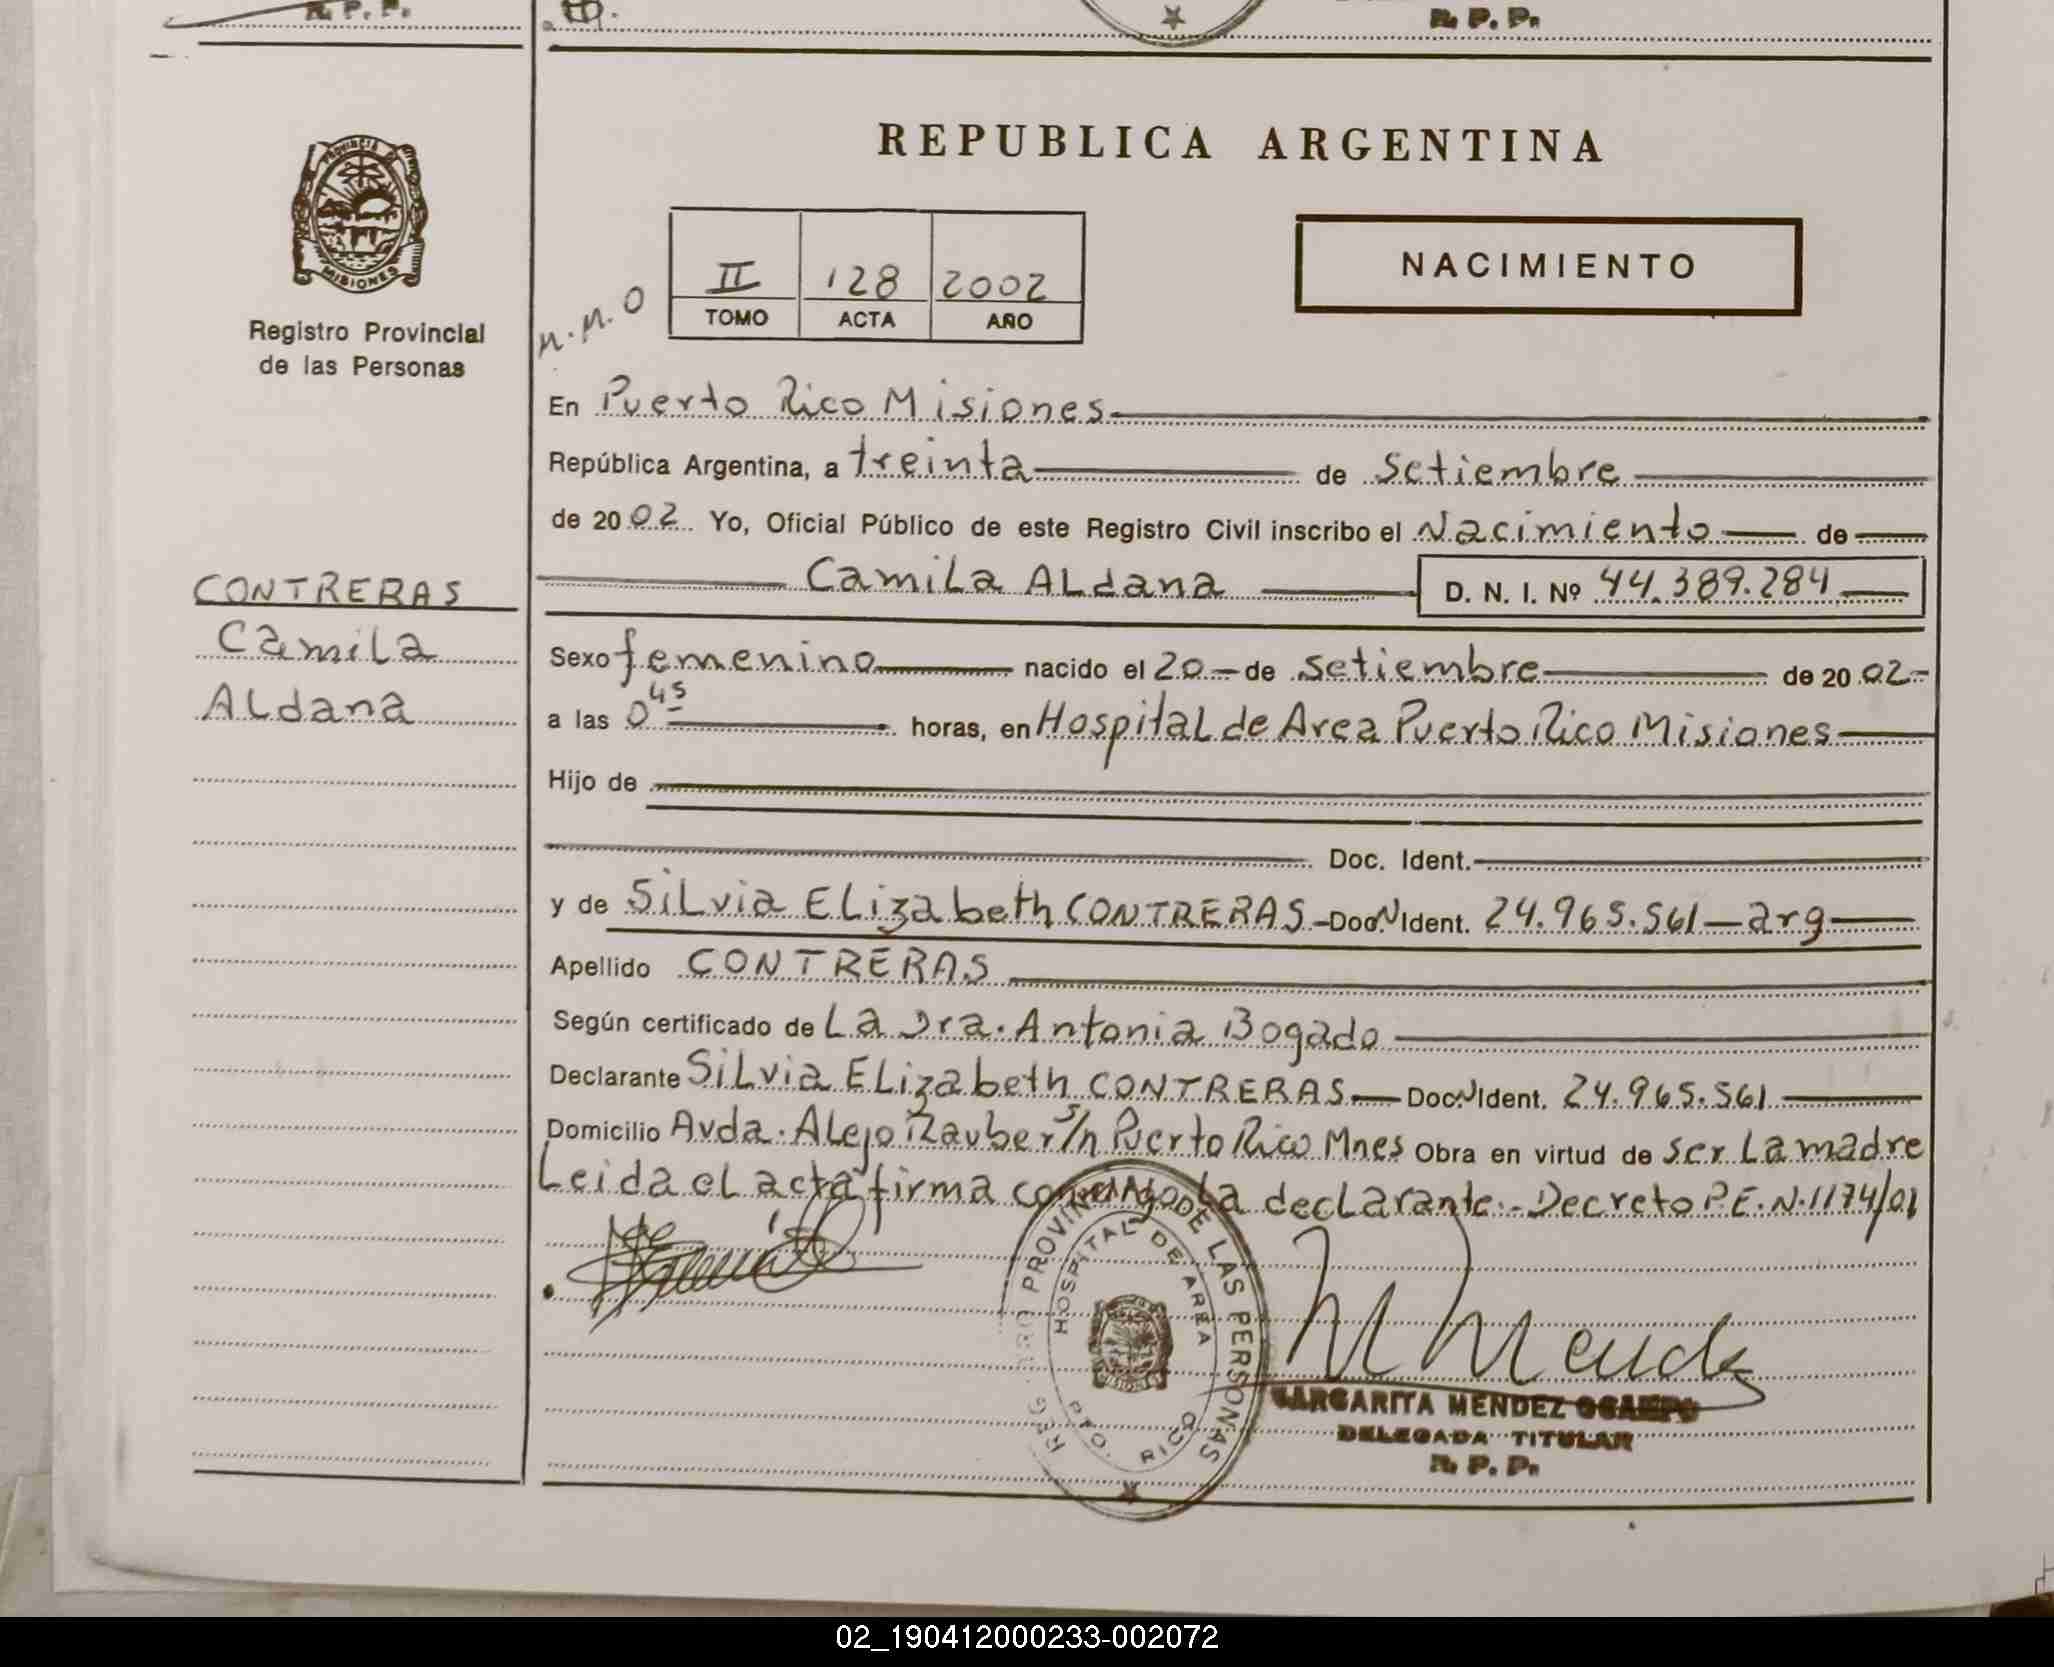 R. P. P.
R. P. P.
REPUBLICA ARGENTINA
PROVINCIA DE
MISIONES
Registro Provincial
de las Personas
M.M.O
II 128 2002
TOMO ACTA AÑO
NACIMIENTO
En Puerto Rico Misiones
República Argentina, a treinta de Setiembre
de 2002 Yo, Oficial Público de este Registro Civil inscribo el Nacimiento de
CONTRERAS
Camila
Aldana
Camila Aldana D. N. I. Nº 44.389.284
Sexo femenino nacido el 20 de Setiembre de 2002
a las 0 45 horas, en Hospital de Area Puerto Rico Misiones
Hijo de
Doc. Ident.
y de Silvia Elizabeth CONTRERAS Doc. N Ident. 24.965.561 arg
Apellido CONTRERAS
Según certificado de La Dra. Antonia Bogado
Declarante Silvia Elizabeth CONTRERAS Doc. N Ident. 24.965.561
Domicilio Avda. Alejo Rauber s/n Puerto Rico Mnes Obra en virtud de ser La madre
Leida el acta firma conmigo La declarante.- Decreto P.E.N. 1174/01
REG PROVINCIAL DE LAS PERSONAS
HOSPITAL DE AREA
PTO. RICO
MISIONES
M Mendez
MARGARITA MENDEZ OCAMPO
DELEGADA TITULAR
R. P. P.
02_190412000233-002072